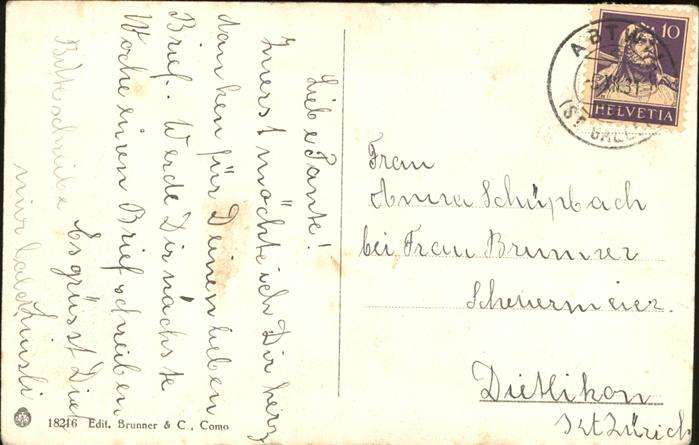 Liebe Tante!
Zuerst möchte ich Dir herz
danken für Deinen lieben
Brief. Werde Dir nächste
Woche einen Brief schreiben
Es grüsst Dich
Bitte schreibe
mir bald
Frau
Anna Schüpbach
bei Frau Brunner
Scheuermeier.
Dietlikon
Kt Zürich
10
HELVETIA
ABTWIL
(ST. GALLEN)
18216 Edit. Brunner & C., Como